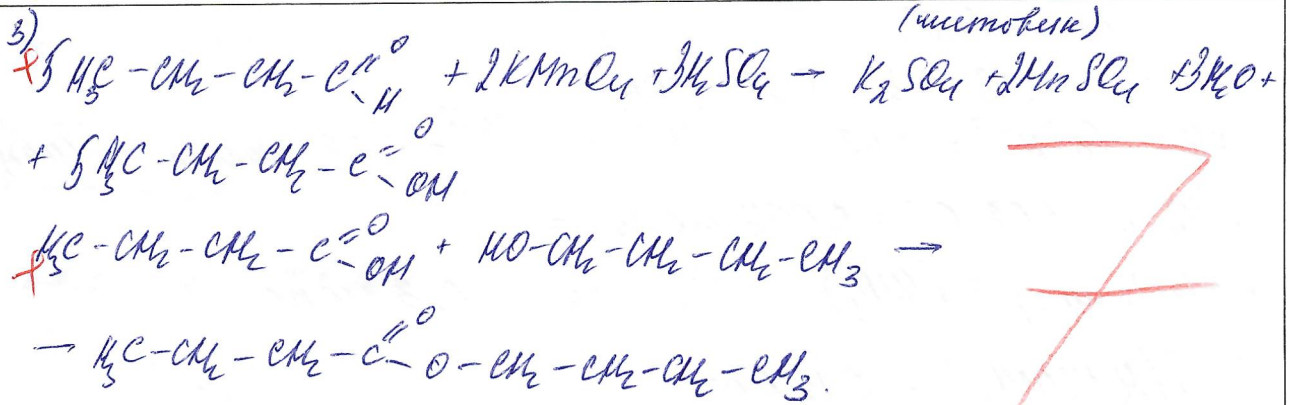 (чистовик)
3)
+ 5 H₃C-CH₂-CH₂-C(=O)-H + 2KMnO₄ + 3H₂SO₄ → K₂SO₄ + 2MnSO₄ + 3H₂O +
+ 5H₃C-CH₂-CH₂-C(=O)-OH
+ H₃C-CH₂-CH₂-C(=O)-OH + HO-CH₂-CH₂-CH₂-CH₃ →
→ H₃C-CH₂-CH₂-C(=O)-O-CH₂-CH₂-CH₂-CH₃.
7